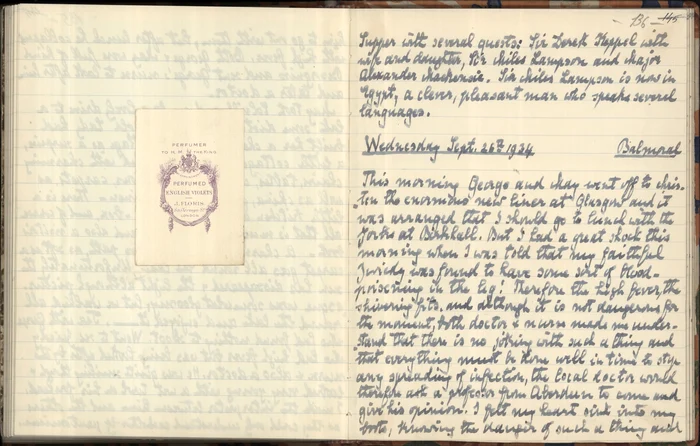 PERFUMER
TO H. M. THE KING
PERFUMED
ENGLISH VIOLETS
J. FLORIS
LONDON
B6 145
Supper with several guests: Sir Derek Keppel with
wife and daughter, Sir Miles Lampson and Major
Alexander Mackenzie. Sir Miles Lampson is now in
Egypt, a clever, pleasant man who speaks several
languages.
Wednesday Sept. 26th 1934 Balmoral
This morning George and May went off to chris-
ten the enormous new liner at Glasgow and it
was arranged that I should go to lunch with the
Yorks at Birkhall. But I had a great shock this
morning when I was told that my faithful
was found to have some sort of blood-
poisoning in the leg! Therefore the high fever, the
shivering fits, and although it is not dangerous for
the moment, both doctor & nurse made me under-
stand that there is no joking with such a thing and
that everything must be done well in time to stop
any spreading of infection, the local doctor would
therefore ask a professor from Aberdeen to come and
give his opinion. I felt my heart sink into my
boots, knowing the danger of such a thing and